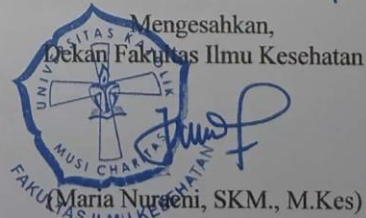 Mengesahkan,
Dekan Fakultas Ilmu Kesehatan
UNIVERSITAS KATOLIK
MUSI CHARITAS
FAKULTAS ILMU KESEHATAN
(Maria Nuraeni, SKM., M.Kes)